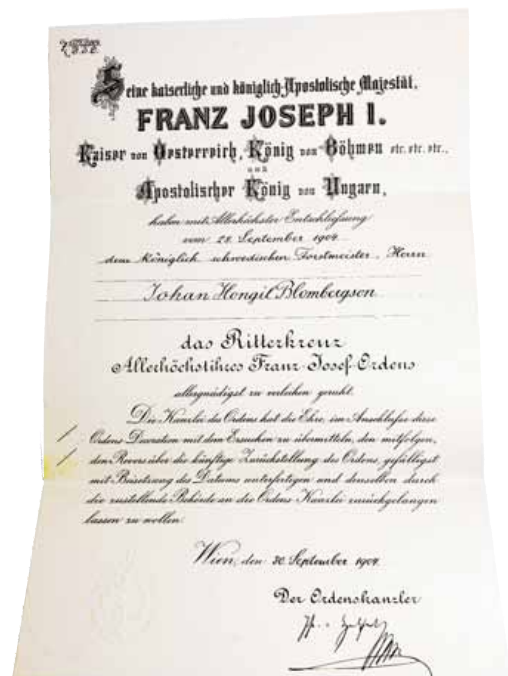 Seine kaiserliche und königlich-Apostolische Majestät,
FRANZ JOSEPH I.
Kaiser von Oesterreich, König von Böhmen etc. etc. etc.,
und
Apostolischer König von Ungarn,
haben mit Allerhöchster Entschließung
vom 28. September 1904
dem königlich schwedischen Forstmeister, Herrn
Johan Hengil Blombergson
das Ritterkreuz
Allerhöchstihres Franz-Josef-Ordens
allergnädigst zu verleihen geruht.
Die Kanzlei des Ordens hat die Ehre, im Anschlusse diese
Ordens-Decoration mit dem Ersuchen zu übermitteln, den mitfolgen-
den Revers über die künftige Zurückstellung des Ordens, gefälligst
mit Beisetzung des Datums unterfertigen und denselben durch
die zustellende Behörde an die Ordens-Kanzlei zurückgelangen
lassen zu wollen.
Wien, den 30. September 1904.
Der Ordenskanzler